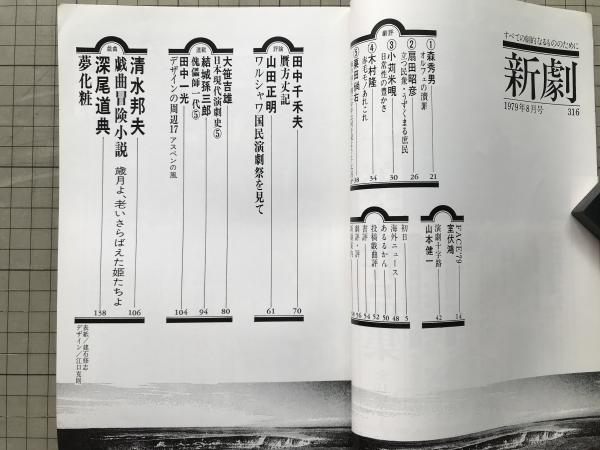 すべての劇的なるもののために
新劇
1979年8月号 316
劇評
①森秀男
オルフェの贖罪
21
②扇田昭彦
立つ民衆・うずくまる庶民
26
③小苅米晛
日常性の豊かさ
30
④木村隆
赤毛モノあれこれ
34
⑤栗田尚右
38
FACE'79
室伏鴻
14
演劇十字路
山本健一
42
初日
5
海外ニュース
48
あるるかん
50
投稿戯曲評
52
書評
54
劇評・評
56
評論
田中千禾夫
贋方丈記
70
山田正明
ワルシャワ国民演劇祭を見て
61
連載
大笹吉雄
日本現代演劇史⑤
80
結城孫三郎
傀儡師一代⑤
94
田中一光
デザインの周辺17 アスペンの風
104
戯曲
清水邦夫
戯曲冒険小説
歳月よ、老いさらばえた姫たちよ
106
深尾道典
夢化粧
138
表紙／建石修志
デザイン／江口克則